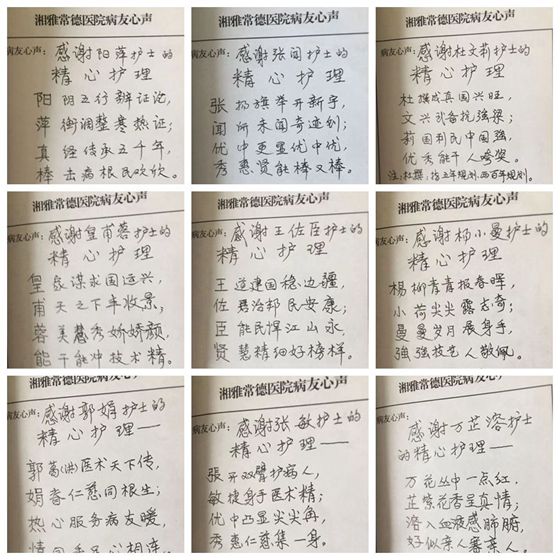 湘雅常德医院病友心声
病友心声：感谢阳萍护士的
精心护理
阳阴五行辨证治，
萍衡调整寒热证；
真经传承五千年，
棒去病根民欢欣。
湘雅常德医院病友心声
病友心声：感谢张闻护士的
精心护理
张扬旗举开新宇，
闻所未闻奇迹创；
优中更显优中优，
秀慧贤能棒又棒。
湘雅常德医院病友心声
病友心声：感谢杜文莉护士的
精心护理
杜撰成真国兴旺，
文兴
抗强梁；
莉国利民中国强，
优秀能干人
注：杜撰：指五年规划，两百年规划。
湘雅常德医院病友心声
病友心声：感谢皇甫蓉护士的
精心护理
皇
谋求国运兴，
甫天之下丰收景，
蓉美慧秀娇娇颜，
能干能冲技术精。
湘雅常德医院病友心声
病友心声：感谢王佐臣护士的
精心护理
王道建国稳边疆，
佐君治邦民安康；
臣能民悍江山永，
贤慧精细好榜样。
湘雅常德医院病友心声
病友心声：感谢杨小曼护士的
精心护理
杨柳青青报春晖，
小荷尖尖露志奇；
曼曼岁月展身手，
强强技艺人敬佩。
湘雅常德医院病友心声
病友心声：感谢郭娟护士的
精心护理——
郭葛(洪)医术天下传，
娟春仁慈同根生；
热心服务病友暖，
湘雅常德医院病友心声
病友心声：感谢张敏护士的
精心护理——
张开双臂护病人，
敏捷身手医术精；
优中凸显尖尖冉，
秀惠仁慈集一身。
湘雅常德医院病友心声
病友心声：感谢万芷溶护士
的精心护理——
万花丛中一点红，
芷紫花香呈真情；
溶入血液感肺腑，
好似亲人赛亲人。